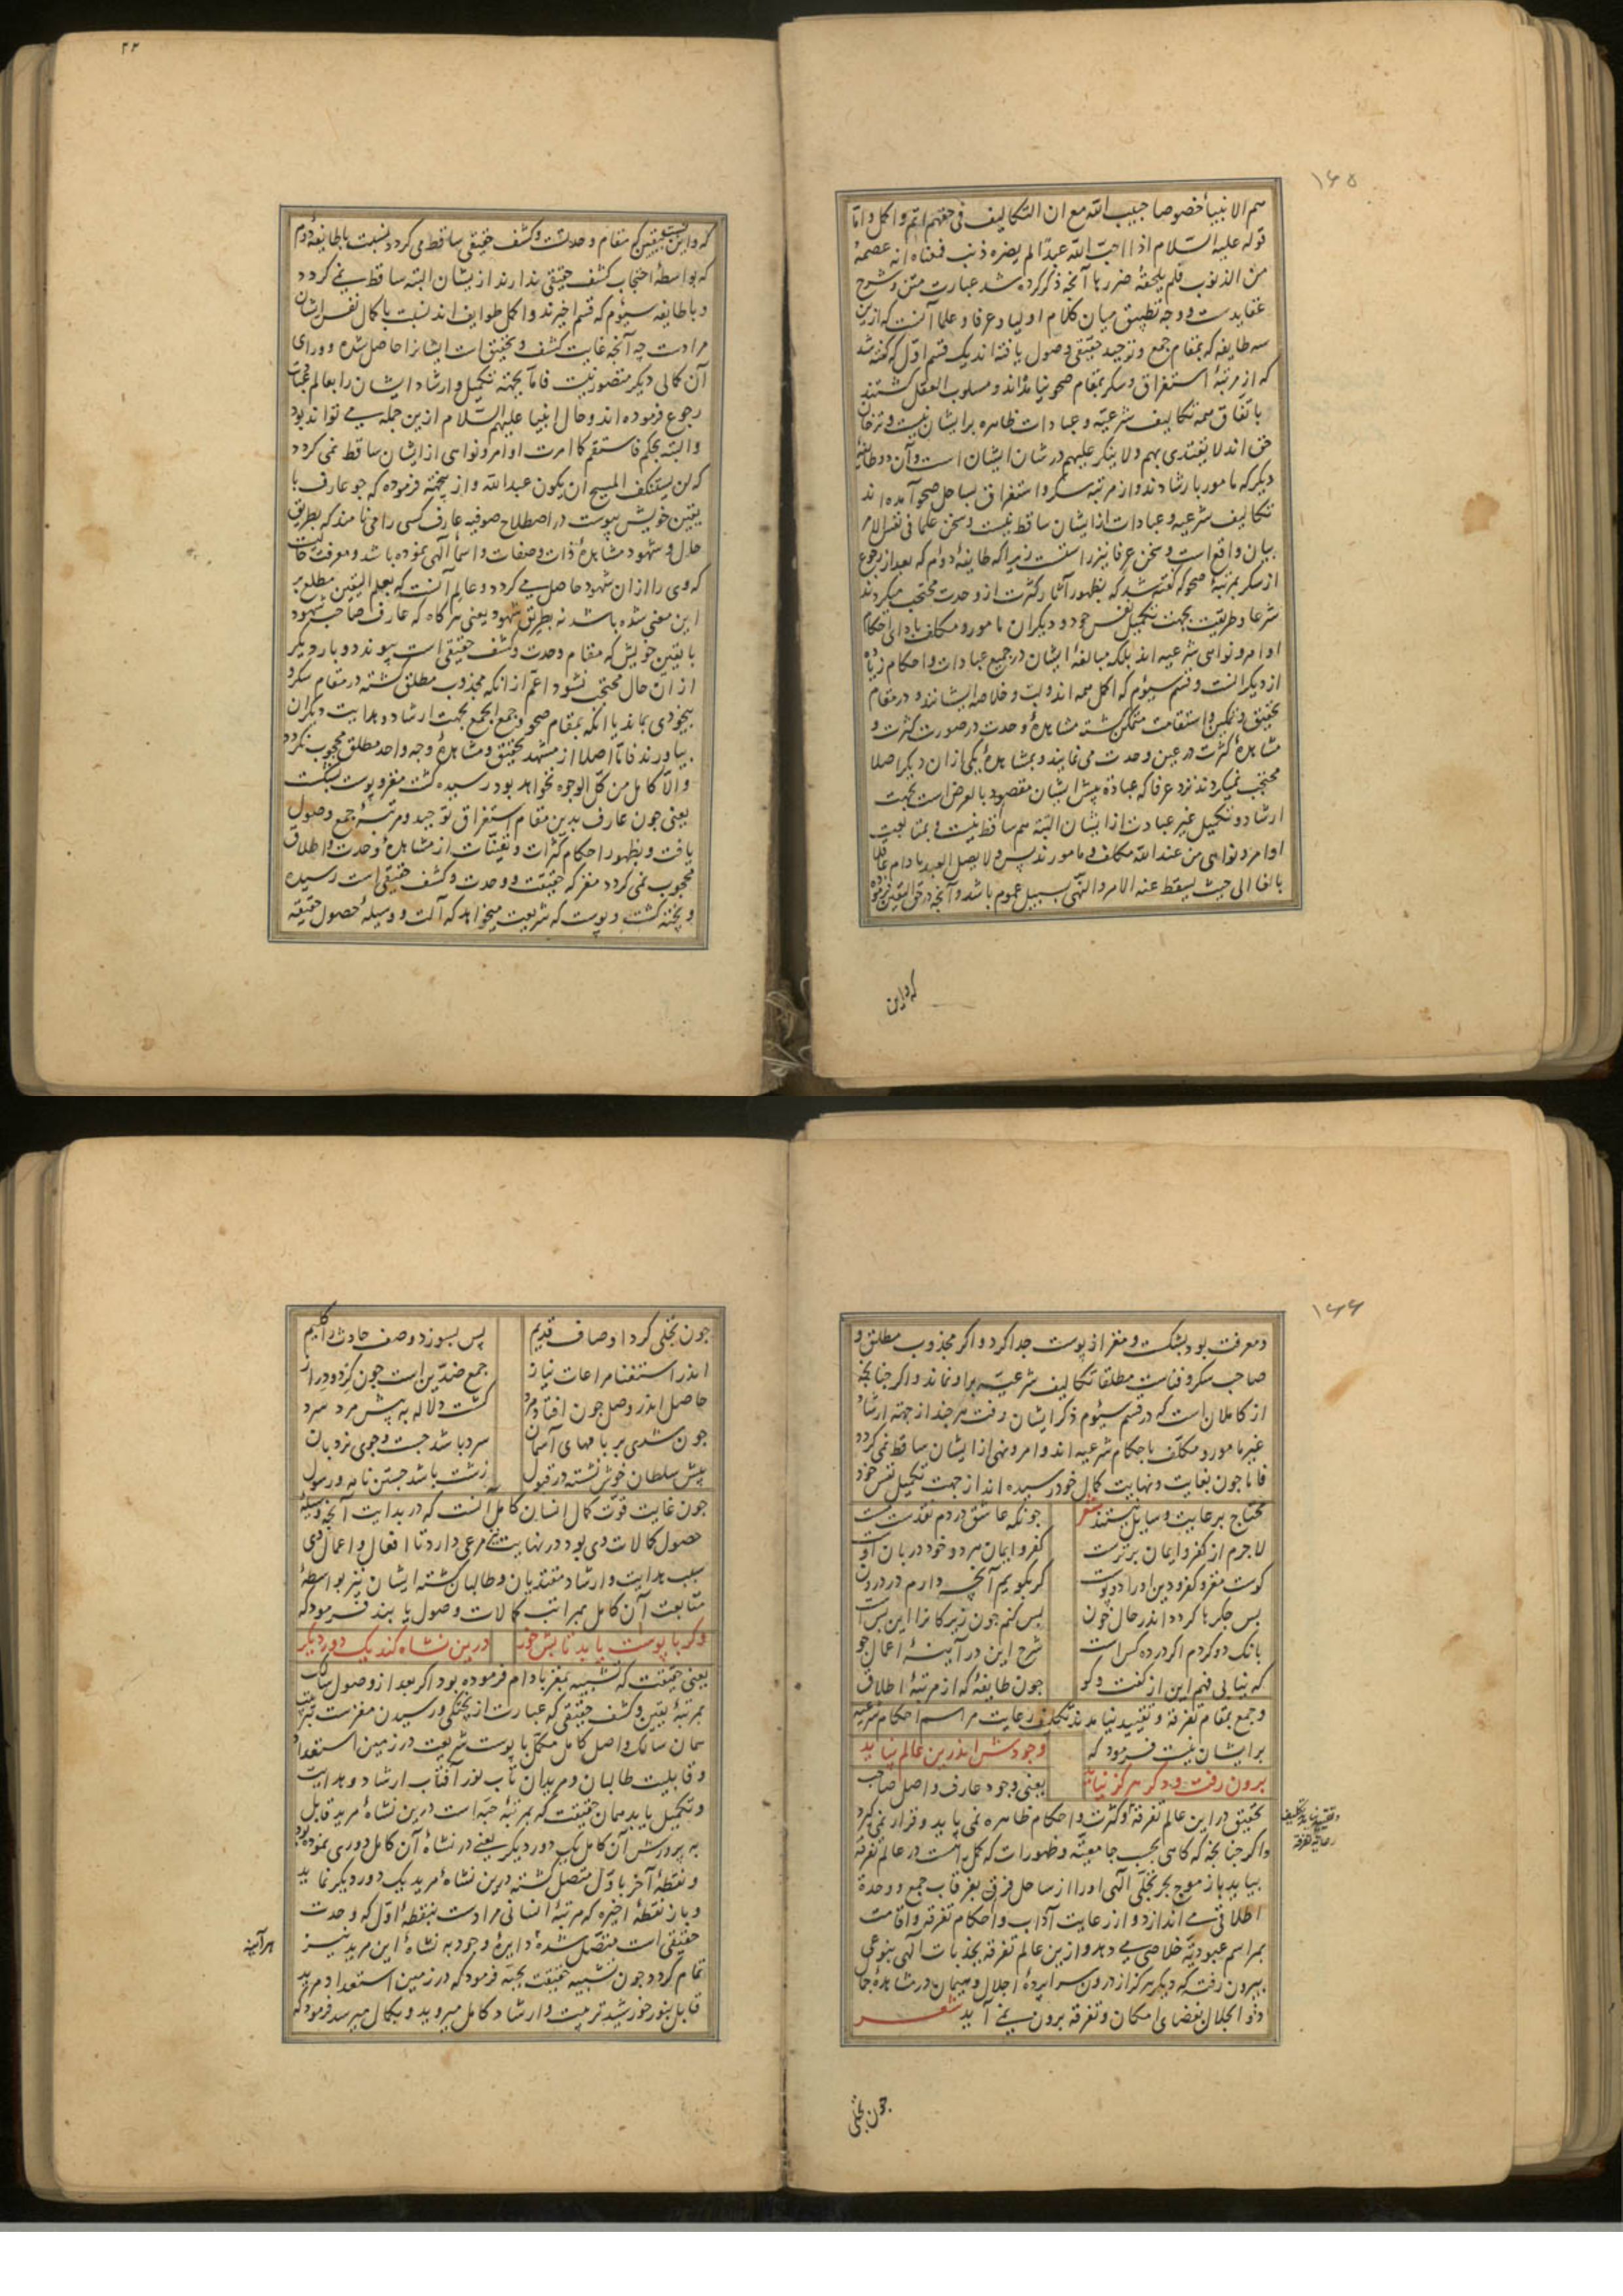 ۱۶۵
هم الانبیاء خصوصا حبیب الله مع ان التکالیف فی حقهم اتم و اکمل و اما
قوله علیه السلام اذا احب الله عبدا لم یضره ذنب فمعناه انه عصمه
من الذنوب فلم یلحقه ضررها آنچه ذکر کرده شد عبارت متن و شرح
عقایدست و وجه تطبیق میان کلام اولیا و عرفا و علما آنست که ازین
سه طایفه که بمقام جمع و توحید حقیقی وصول یافته‌اند یک قسم اول که گفته شد
که از مرتبهٔ استغراق و سکر بمقام صحو نیامده‌اند و مسلوب العقل گشتند
باتفاق همه تکالیف شرعیه و عبادات ظاهره بر ایشان نیست و ترخان
حق اند لا یقتدی بهم و لا ینکر علیهم در شان ایشان است و آن دو طایفهٔ
دیگر که مامور بارشادند و از مرتبه سکر و استغراق بساحل صحو آمده‌اند
تکالیف شرعیه و عبادات از ایشان ساقط نیست و سخن علما فی نفس الامر
بیان واقع است و سخن عرفا نیز راست زیرا که طایفهٔ دوم که بعد از رجوع
از سکر بمرتبهٔ صحو که گفته شد که بظهور آثار کثرت از وحدت محتجب میگردند
شرعا و طریقت بجهت تکمیل نفس خود و دیگران مامور و مکلف بادای احکام
اوامر و نواهی شرعیه اند بلکه مبالغهٔ ایشان در جمیع عبادات و احکام زیاده
از دیگرانست و قسم سیوم که اکمل همه اند و لب و خلاصه ایشانند و در مقام
تحقیق و تمکین و استقامت متمکن گشته مشاهدهٔ وحدت در صورت کثرت و
مشاهدهٔ کثرت در عین وحدت می‌نمایند و بمشاهدهٔ یکی از ان دیگر اصلا
محتجب نمیگردند نزد عرفا که عبادة پیش ایشان مقصود بالعرض است بجهت
ارشاد و تکمیل غیر عبادت از ایشان البته هم ساقط نیست و بمتابعت
اوامر و نواهی من عند الله مکلف و مامورند پس و لا یصل العبد مادام عاقلا
بالغا الی حیث یسقط عنه الامر و النهی بسبیل عموم باشد و آنچه در حق الیقین فرموده
که و این
۲۲
که و این یقین که مقام وحدت و کشف حقیقی ساقط می‌گردد نسبت با طایفهٔ دوم
که بواسطهٔ احتجاب کشف حقیقی ندارند از یشان البته ساقط نمی گردد
و با طایفه سیوم که قسم اخیرند و اکمل طوایف اند نسبت با کمال نفس ایشان
مرادست چه آنچه غایت کشف و تحقیق است ایشانرا حاصل شده و ورای
آن کمالی دیگر متصور نیست فاما بجهة تکمیل و ارشاد ایشان را بعالم
رجوع فرموده‌اند و حال انبیا علیهم السلام ازین جمله می تواند بود
و البته بحکم فاستقم کما امرت اوامر و نواهی از ایشان ساقط نمی گردد
که لن یستنکف المسیح ان یکون عبدا لله و از یجهة فرموده که چو عارف با
یقین خویش پیوست در اصطلاح صوفیه عارف کسی را می‌نامند که بطریق
حال و شهود مشاهدهٔ ذات و صفات و اسماء آلهی نموده باشد و معرفت حالتی است
که وی را از ان شهود حاصل می گردد و عالم آنست که بعلم الیقین مطلع بر
این معنی شده باشد نه بطریق شهود یعنی هر گاه که عارف صاحب شهود
با یقین خویش که مقام وحدت و کشف حقیقی است پیوندد و بار دیگر
از ان حال محتجب نشود اعم از انکه مجذوب مطلق گشته در مقام سکر و
بیخودی بماند یا انکه بمقام صحو و جمع الجمع بجهت ارشاد و هدایت دیگران
بیاورند فاما اصلا از مشهد تحقیق و مشاهدهٔ وجه واحد مطلق محجوب نگردد
و الا کامل من کل الوجوه نخواهد بود رسیده گشت مغز و پوست بشکست
یعنی چون عارف بدین مقام استغراق توحید و مرتبهٔ جمع وصول
یافت و بظهور احکام کثرات و تعینات از مشاهدهٔ وحدت و اطلاق
محجوب نمی گردد مغز که حقیقت و وحدت و کشف حقیقی است رسیده
و پخته گشت و پوست که شریعت میخواهد که آلت و وسیلهٔ حصول حقیقة
۱۶۶
و معرفت بود بشکست و مغز از پوست جدا کرد و اگر مجذوب مطلق و
صاحب سکر و فناست مطلقا تکالیف شرعیه برو نماند و اگر چنانچه
از کاملان است که در قسم سیوم ذکر ایشان رفت هر چند از جهة ارشاد
غیر مامور و مکلف باحکام شرعیه اند و امر و نهی از ایشان ساقط نمی گردد
فاما چون بغایت و نهایت کمال خود رسیده اند از جهت تکمیل نفس خود
محتاج برعایت وسایل نیستند شعر چونکه عاشق در دم نقدست مست
لاجرم از کفر و ایمان برترست کفر و ایمان هر دو خود دربان اوست
کوست مغز و کفر و دین او را دو پوست گر بگویم آنچه دارم در درون
بس جگرها گردد اندر حال خون بس کنم چون زیرکانرا این بس است
بانگ دو کردم اگر در ده کس است شرح این در آینهٔ اعمال جو
که نیابی فهم این از گفت و گو چون طایفهٔ که از مرتبهٔ اطلاق
و جمع بمقام تفرقه و تقیید نیامدند تکلیف رعایت مراسم احکام شرعیه
بر ایشان نیست فرمود که وجودش اندرین عالم نپاید
برون رفت و دگر هرگز نیاید یعنی وجود عارف واصل صاحب
تحقیق در این عالم تفرقه و کثرت و احکام ظاهره نمی‌پاید و قرار نمی‌گیرد
و اگر چنانچه گاهی بحسب جامعیت و ظهورات که کمل راست در عالم تفرقه
بیاید باز موج بحر تجلی آلهی او را از ساحل فرق بغرقاب جمع و وحدة
اطلاقی می اندازد و از رعایت آداب و احکام تفرقه و اقامت
بمراسم عبودیة خلاصی می دهد و ازین عالم تفرقه بجذبات آلهی بنوعی
بیرون رفت که دیگر هرگز از درون سراپردهٔ اجلال و هیمان در مشاهدهٔ جمال
ذو الجلال بفضای امکان و تفرقه برون نمی آید شعر
چون تجلی
چون تجلی کرد اوصاف قدیم پس بسوزد وصف حادث را گلیم
اندر استغنا مراعات نیاز جمع ضدین است چون گرد و دراز
حاصل اندر وصل چون افتاد مرد گشت دلاله به پیش مرد سرد
چون شدی بر بامهای آسمان سرد باشد جست و جوی نردبان
پیش سلطان خوش نشسته در قبول زشت باشد جستن نامه و رسول
چون غایت قوت کمال انسان کامل آنست که در بدایت آنچه وسیلهٔ
حصول کمالات وی بود در نهایت مرعی دارد تا افعال و اعمال وی
سبب هدایت و ارشاد مقتدیان و طالبان گشته ایشان نیز بواسطهٔ
متابعت آن کامل بمراتب کمالات وصول یابند فرمود که
وگر با پوست یابد تابش خور درین نشاه کند یک دور دیگر
یعنی حقیقت که تشبیه بمغز بادام فرموده بود اگر بعد از وصول سالک
بمرتبهٔ یقین و کشف حقیقی که عبارت از پختگی و رسیدن مغزست
همان سالک واصل کامل مکمل با پوست شریعت در زمین استعداد
و قابلیت طالبان و مریدان تاب نور آفتاب ارشاد و هدایت
و تکمیل یابد همان حقیقت که بمرتبهٔ حبه است درین نشاهٔ مرید قابل
به پرورش آن کامل یک دور دیگر یعنی در نشاهٔ آن کامل دوری نموده بود
و نقطهٔ آخر باول متصل گشته درین نشاهٔ مرید یک دور دیگر نماید
و باز نقطهٔ اخیره که مرتبهٔ انسانی مرادست بنقطهٔ اول که وحدت
حقیقی است متصل شده دایرهٔ وجود به نشاهٔ این مرید نیز
تمام گردد چون تشبیه حقیقت بحبه فرمود که در زمین استعداد مرید
قابل بنور خورشید تربیت و ارشاد کامل میروید و بکمال میرسد فرمود که
هر آینه